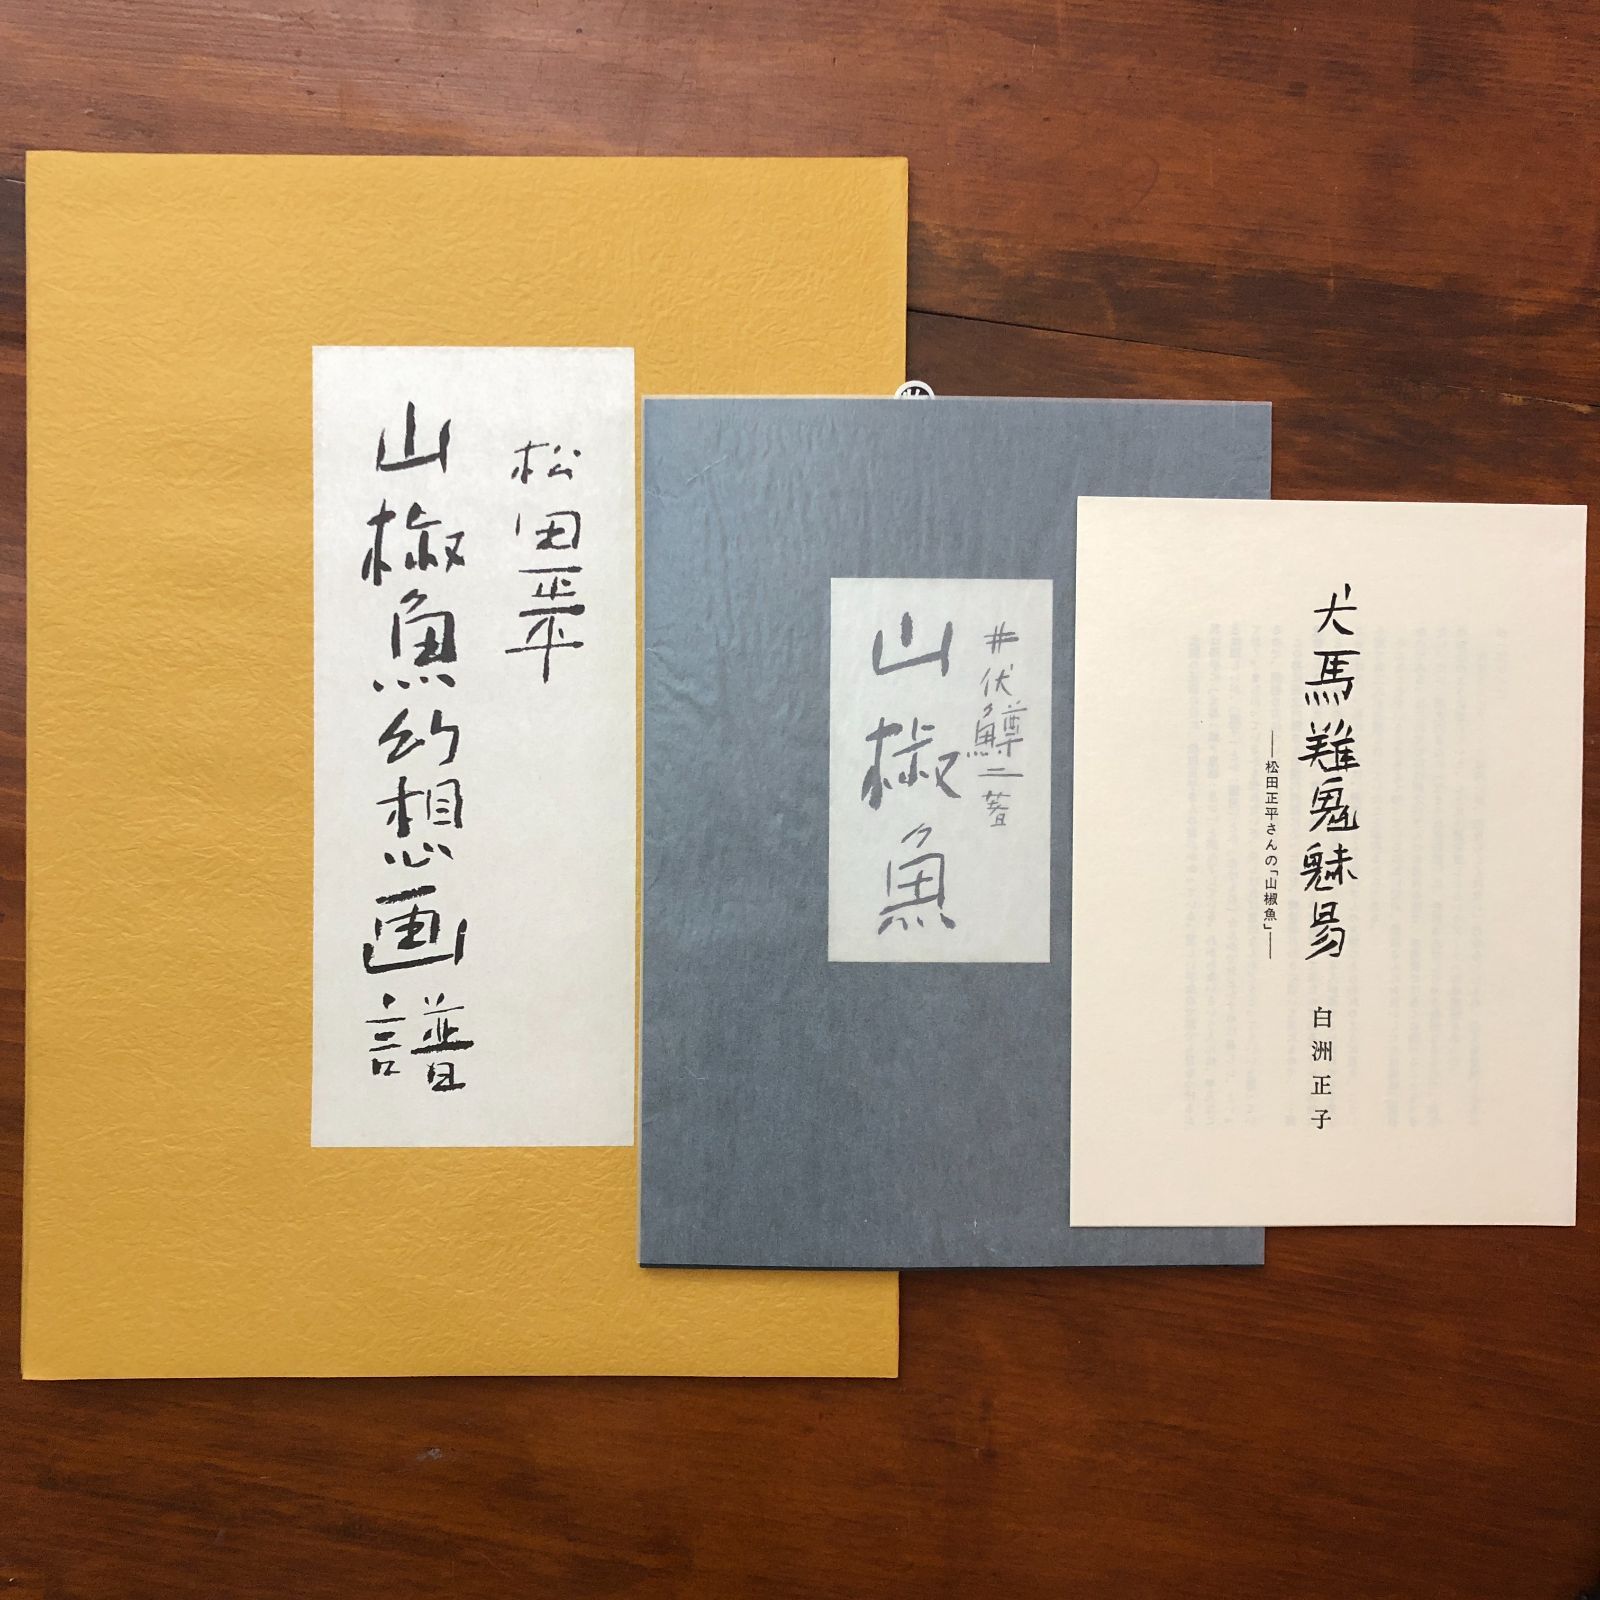 松田正平
山椒魚幻想画譜
井伏鱒二著
山椒魚
犬馬難鬼魅易
—松田正平さんの「山椒魚」—
白洲正子